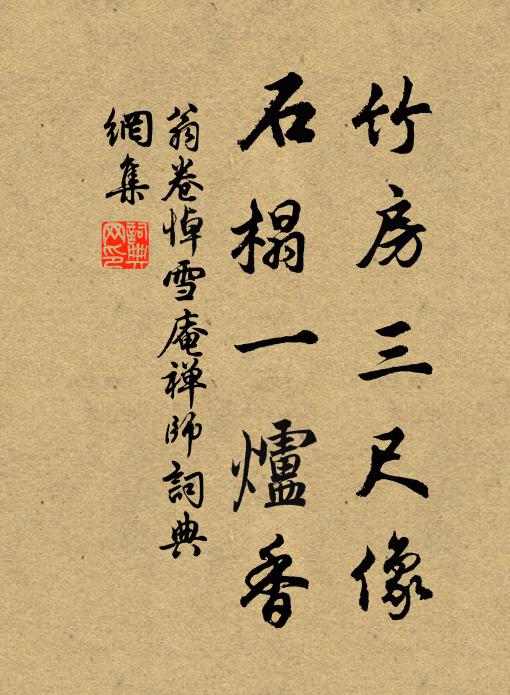 竹房三尺像
石榻一爐香
翁卷悼雪庵禅師詞典
網集
詞典
网印